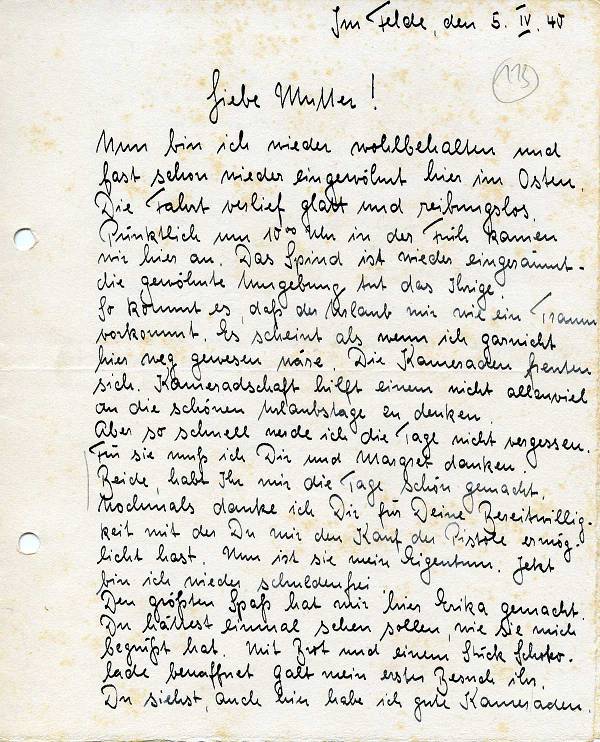 Im Felde, den 5. IV. 40
113
Liebe Mutter!
Nun bin ich wieder wohlbehalten und
fast schon wieder eingewöhnt hier im Osten.
Die Fahrt verlief glatt und reibungslos.
Pünktlich um 10⁰⁰ Uhr in der Früh kamen
wir hier an. Das Spind ist wieder eingeräumt-
die gewöhnte Umgebung tut das Ihrige.
So kommt es, daß der Urlaub mir wie ein Traum
vorkommt. Es scheint als wenn ich garnicht
hier weg gewesen wäre. Die Kameraden freuten
sich. Kameradschaft hilft einem nicht allzuviel
an die schönen Urlaubstage zu denken.
Aber so schnell werde ich die Tage nicht vergessen.
Für sie muß ich Dir und Margret danken!
Beide, habt Ihr mir die Tage schön gemacht.
Nochmals danke ich Dir für Deine Bereitwillig-
keit mit der Du mir den Kauf der Pistole ermög-
licht hast. Nun ist sie mein Eigentum. Jetzt
bin ich wieder schuldenfrei
Den größten Spaß hat mir hier Erika gemacht.
Du hättest einmal sehen sollen, wie sie mich
begrüßt hat. Mit Brot und einem Stück Schoko-
lade bewaffnet galt mein erster Besuch ihr.
Du siehst, auch hier habe ich gute Kameraden.